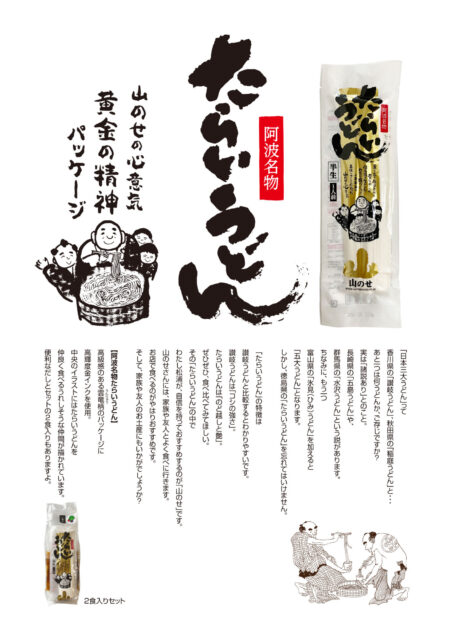 たらいうどん
阿波名物
山のせの心意気
黄金の精神
パッケージ
阿波名物
たらい
うどん
半生
1人前
山のせ
「日本三大うどん」って
香川県の「讃岐うどん」、秋田県の「稲庭うどん」と・・・
あと一つは何うどんか、ご存じですか?
実は「諸説あり」とのこと。
長崎県の「五島うどん」や、
群馬県の「水沢うどん」という説があります。
ちなみに、もう一つ
富山県の「氷見(ひみ)うどん」を加えると
「五大うどん」となります。
しかし、徳島県の「たらいうどん」を忘れてはいけません。
「たらいうどん」の特徴は
讃岐うどんと比較するとわかりやすいです。
讃岐うどんは「コシの強さ」、
たらいうどんは「のど越しと艶」。
ぜひぜひ、食べ比べてみてほしい。
その「たらいうどん」の中で
わたし松浦が、自信を持っておすすめするのが「山のせ」です。
山のせさんには、家族や友人とよく食べに行きます。
お店で食べるのがやはりおすすめです。
そして、家族や友人のお土産にもいかがでしょうか?
【阿波名物たらいうどん】
高級感のある雲竜柄のパッケージに
高輝度金インクを使用。
中央のイラストにはたらいうどんを
仲良く食べるうれしそうな仲間が描かれています。
便利なだしとセットの2食入りもありますよ。
2食入りセット